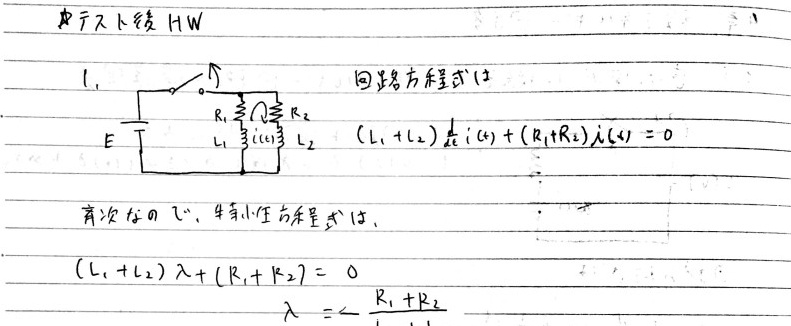 中テスト後 HW
1.
E R₁ L₁ i(t) R₂ L₂
回路方程式は
(L₁+L₂) d/dt i(t) + (R₁+R₂) i(t) = 0
斉次なので、特性方程式は、
(L₁+L₂) λ + (R₁+R₂) = 0
λ = - R₁+R₂